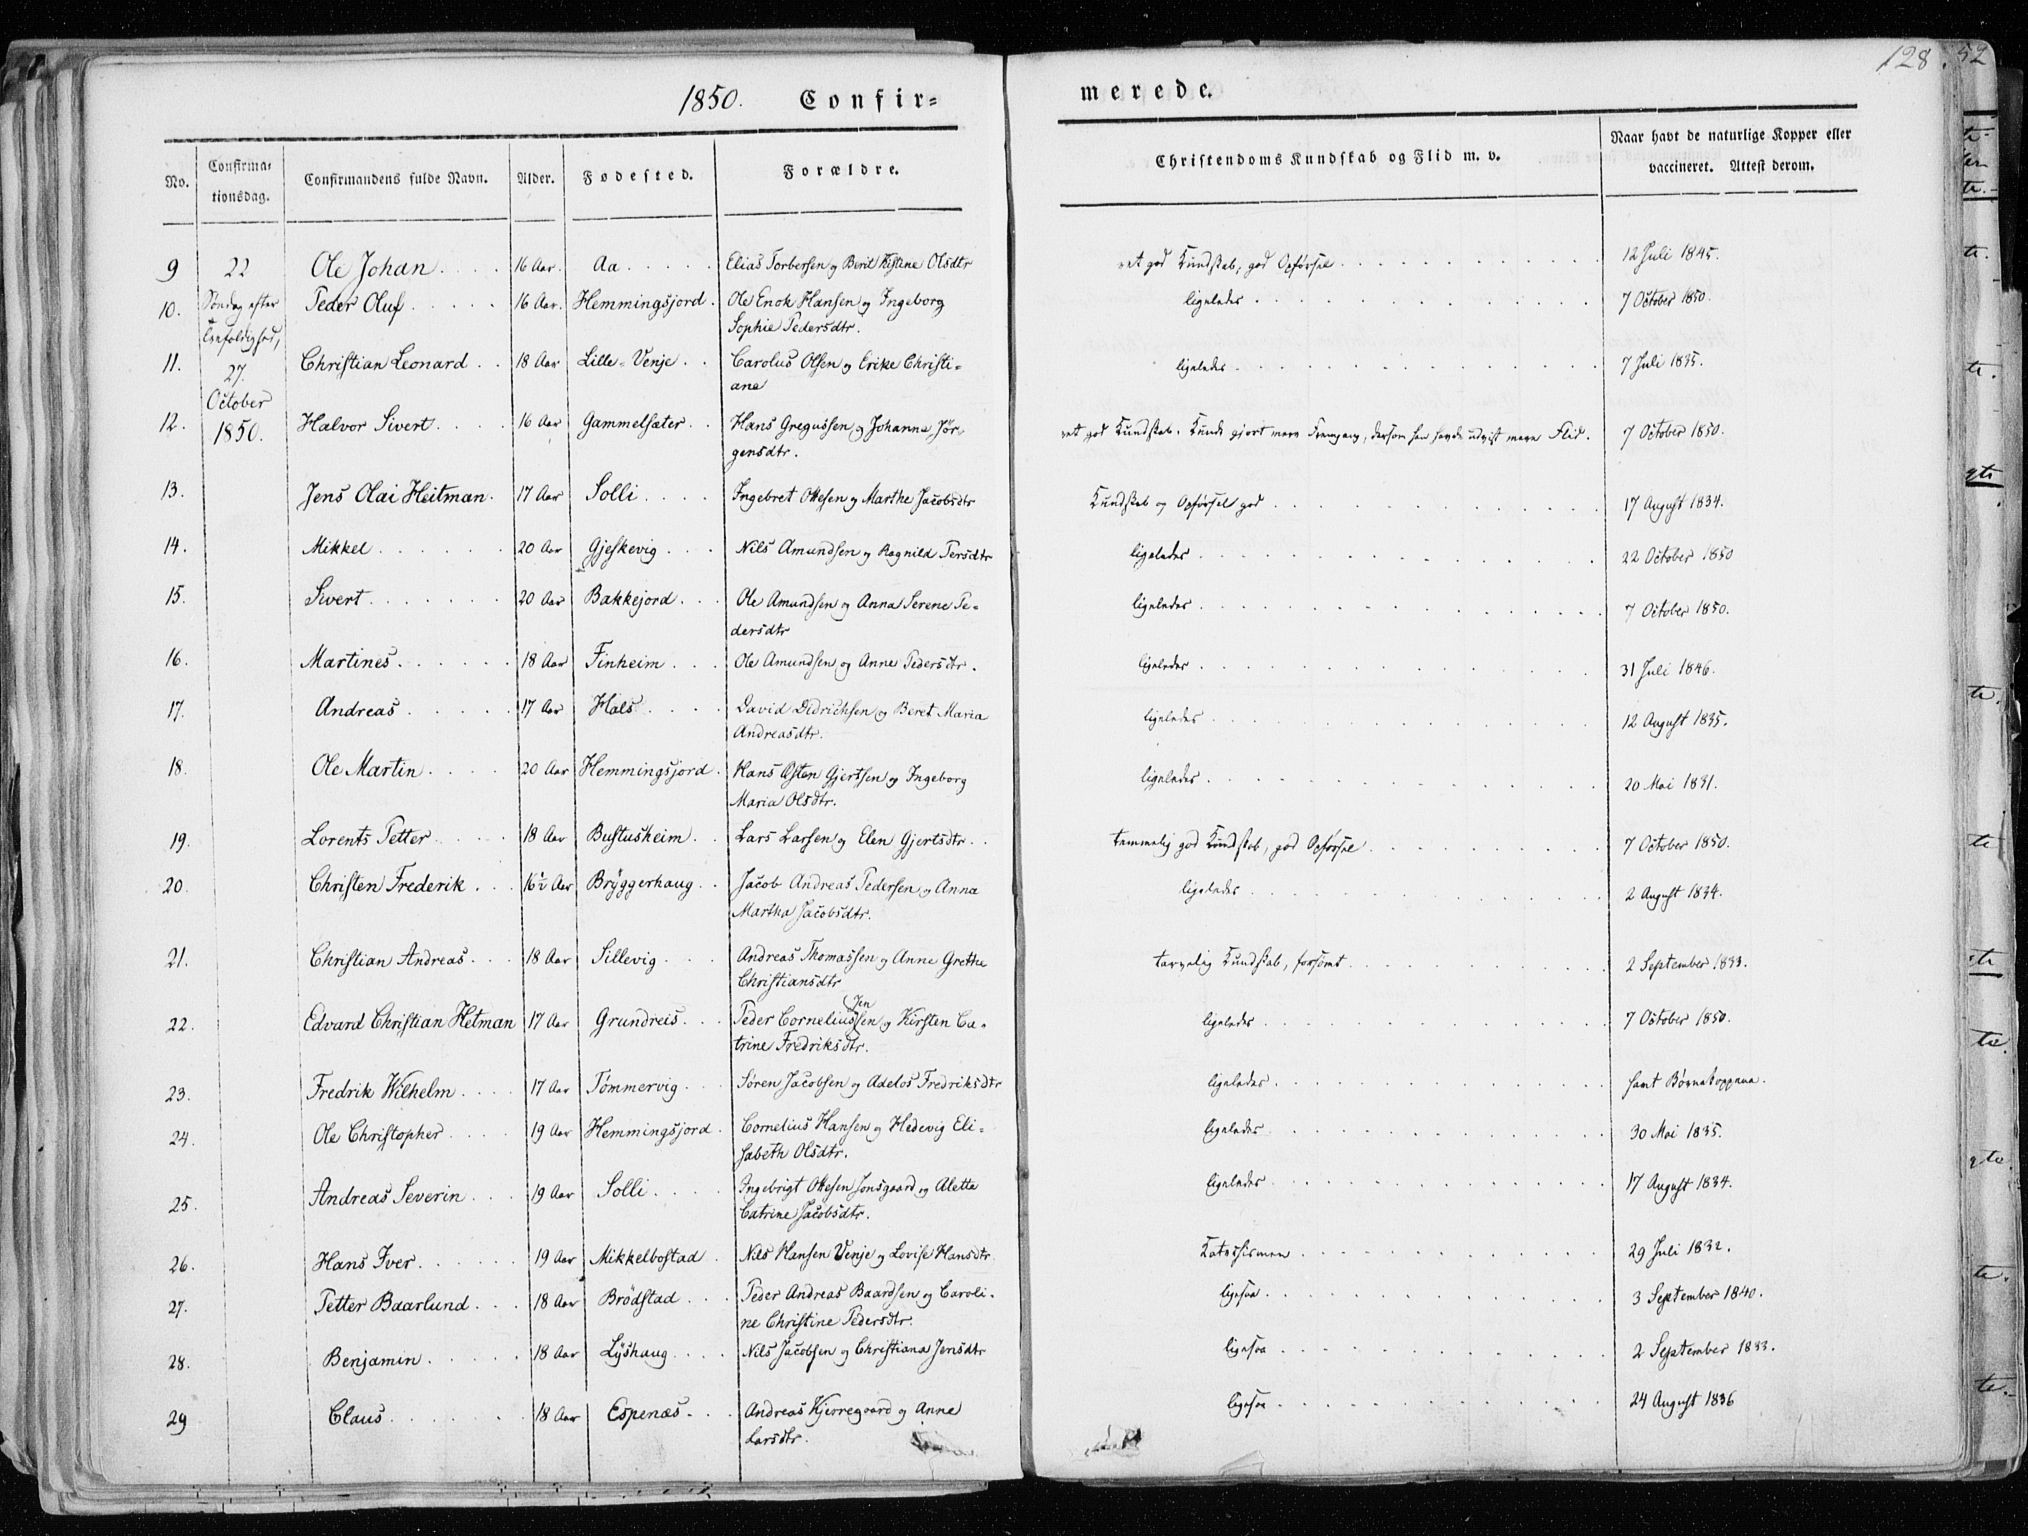 1850. Confir=
merede.
128.
52
No.
Confirma-
tionsdag.
Confirmandens fulde Navn.
Alder.
Fødested.
Forældre.
Christendoms Kundskab og Flid m. v.
Naar havt de naturlige Kopper eller
vaccineret. Attest derom.
9 22 Ole Johan . . . . 16 Aar. Aa . . . . . Elias Torbersen og Berit Kistine Olsdtr ret god Kundskab, god Opførsel . . . 12 Juli 1845.
10. Søndag efter Peder Oluf . . . . . 16 Aar. Hemmingsjord . Ole Enok Hansen og Ingeborg ligeledes . . . 7 October 1850.
Trefoldighed, Sophie Pedersdtr.
11. 27. Christian Leonard . . 18 Aar Lille=Venje . . Carolus Olsen og Erike Christi= ligeledes . . . 7 Juli 1835.
October ane
12. 1850. Halvor Sivert . . . . 16 Aar Gammelsæter . . Hans Gregussen og Johanna Jør, ret god Kundskab. Kunde gjort mere Fremgang, dersom han havde udvist mere Flid. 7 October 1850.
gensdtr.
13. Jens Olai Heitman . 17 Aar Solli . . . . Ingebret Ottesen og Marthe Jacobsdtr Kundskab og Opførsel god . . . 17 August 1834.
14. Mikkel . . . . . . 20 Aar Gjeskevig . . . Nils Amundsen og Ragnild Persdtr ligeledes . . . 22 October 1850
15. Sivert . . . . . . . 20 Aar Bakkejord . . . Ole Amundsen og Anna Serene Pe= ligeledes . . . 7 October 1850.
dersdtr
16. Martines . . . . . . 18 Aar Finheim . . . Ole Amundsen og Anne Pedersdtr. ligeledes . . . 31 Juli 1846.
17. Andreas . . . . . 17 Aar Hals . . . . David Didrichsen og Beret Maria ligeledes . . . 12 August 1835.
Andreasdtr.
18. Ole Martin . . . . 20 Aar Hemmingsjord . Hans Østen Gjertsen og Ingeborg ligeledes . . . 20 Mai 1831.
Maria Olsdtr.
19. Lorents Petter . . . . 18 Aar Bustusheim . . Lars Larsen og Elen Gjertsdtr . . temmelig god Kundskab, god Opførsel . . . 7 October 1850.
20. Christen Frederik . . . 16½ Aar Bryggerhaug . . Jacob Andreas Pedersen og Anna ligeledes . . . 2 August 1834.
Martha Jacobsdtr.
21. Christian Andreas . . . 18 Aar Sillevig . . . Andreas Thomassen og Anne Grethe tarvelig Kundskab, forsømt . . . 2 September 1833.
Christiansdtr
22. Edvard Christian Hetman 17 Aar Grundreis . . . Peder Corneliussen og Kirsten Ca= ligeledes . . . 7 October 1850.
sen
trine Fredriksdtr.
23. Fredrik Wilhelm . . . . 17 Aar Tømmervig . . . Søren Jacobsen og Adelos Fredriksdtr ligeledes . . . havt Børnekopperne.
24. Ole Christopher . . . . 19 Aar Hemmingsjord . Cornelius Hansen og Hedevig Eli= ligeledes . . . 30 Mai 1835.
sabeth Olsdtr.
25. Andreas Severin . . . 19 Aar Solli . . . . Ingebrigt Ottesen Jonsgaard og Aletta ligeledes . . . 17 August 1834.
Catrine Jacobsdtr.
26. Hans Iver . . . . . 19 Aar Mikkelbostad . Nils Hansen Venje og Lovise Hansdtr Katechismen . . . 29 Juli 1832.
27. Petter Baarlund . . . 18 Aar Brödstad . . . Peder Andreas Baardsen og Caroli= ligesaa . . . 3 September 1840.
ne Christine Pedersdtr.
28. Benjamin . . . . . 18 Aar Lyshaug . . . . Nils Jacobsen og Christiana Jensdtr ligesaa . . . 2 September 1833.
29 Claus . . . . . . 18 Aar Espenæs . . . Andreas Kjerregaard og Anne ligesaa . . . 24 August 1836
Larsdtr.